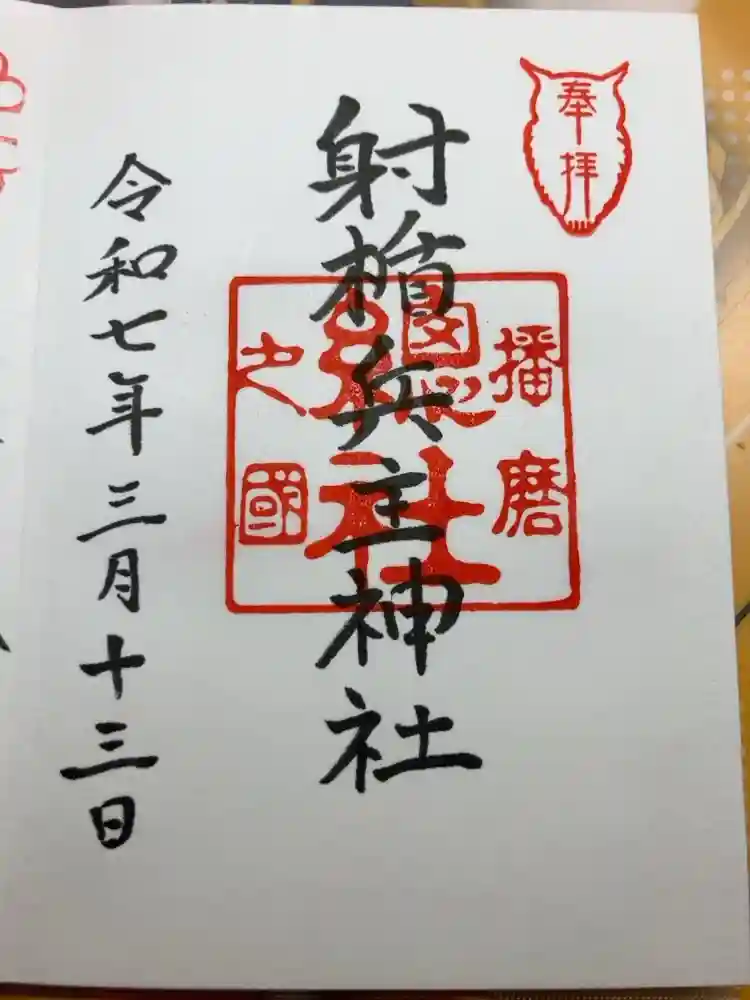 奉拝
射楯兵主神社
播磨
之國
總社
令和七年三月十三日